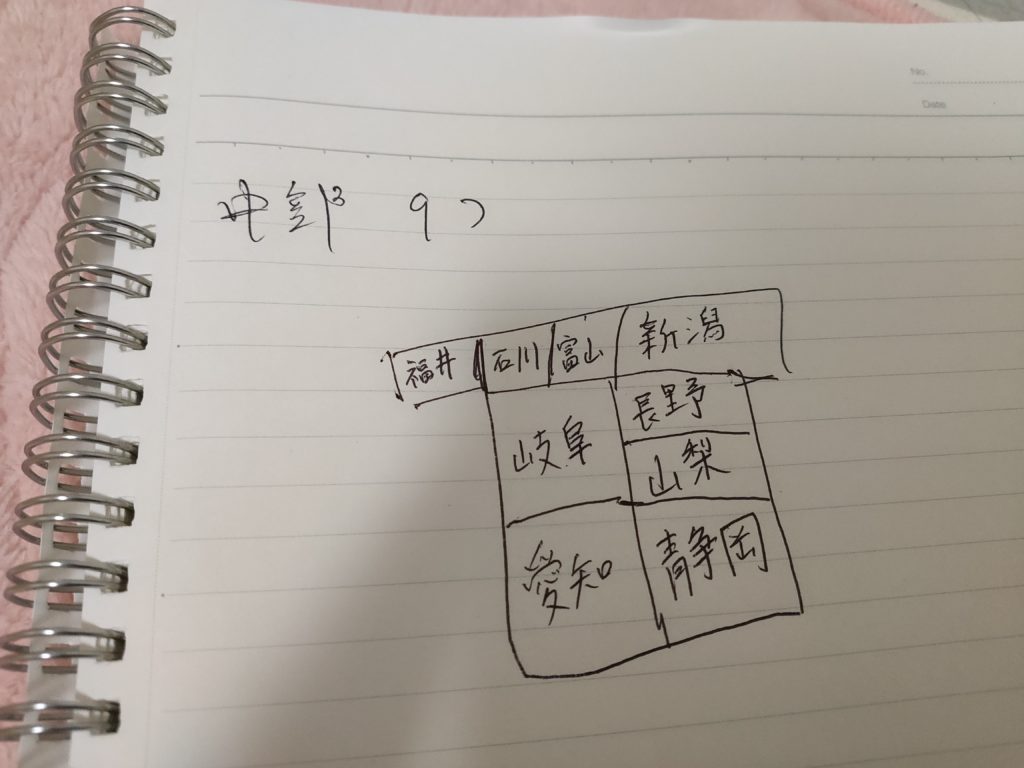 No.
Date
中部 9つ
福井 石川 富山 新潟
岐阜 長野
山梨
愛知 静岡